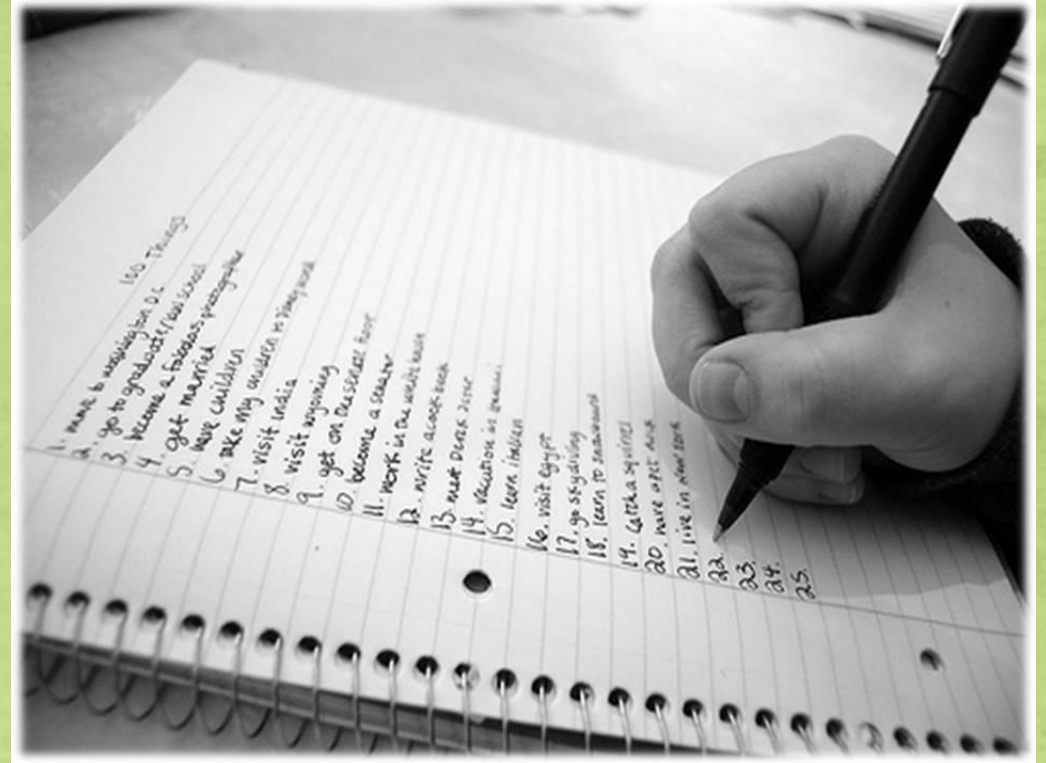 100 Things
1. move to washington D.C.
2. go to graduate/law school
3. become a fabulous photographer
4. get married
5. have children
6. take my children to disney world
7. visit India
8. visit wyoming
9. get on the senate floor
10. become a senator
11. work in the white house
12. write a cook book
13. meet Derek Jeter
14. vacation in hawaii
15. learn italian
16. visit egypt
17. go skydiving
18. learn to snowboard
19. catch a squirrel
20. have a pet
21. live in new york
22.
23.
24.
25.